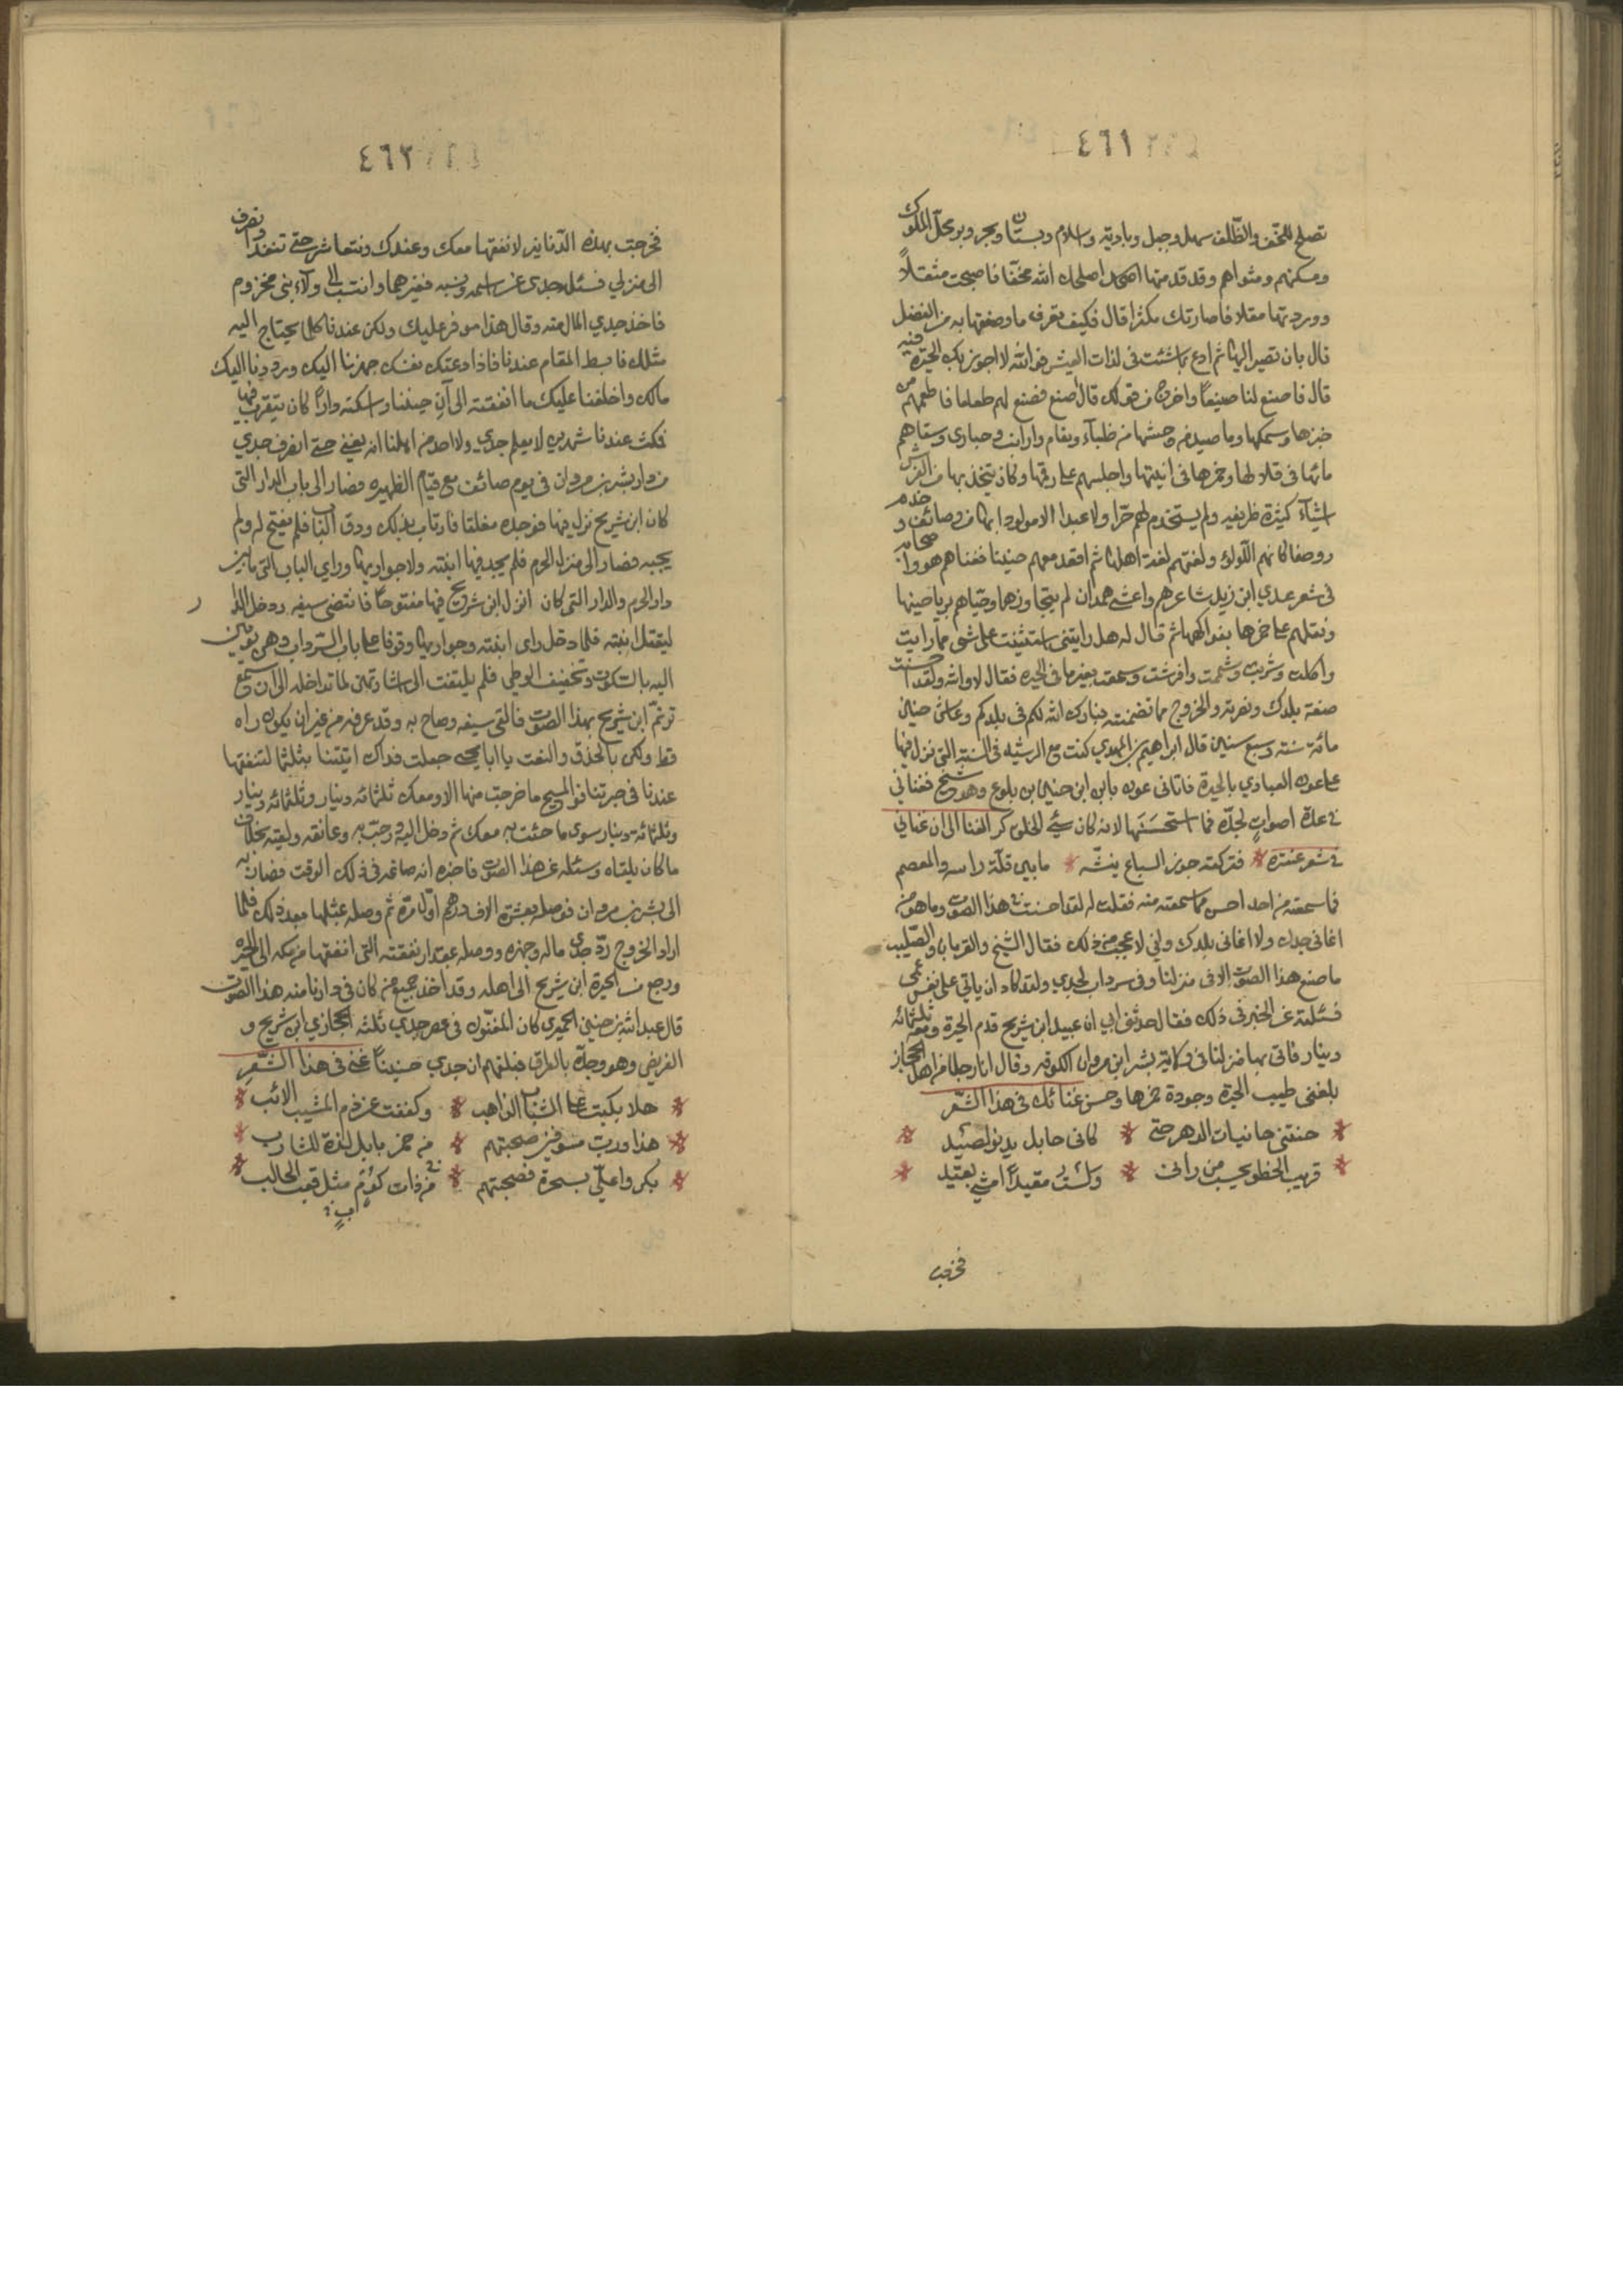 ٤٦١
تصلح للخف والظلف سهل وجبل وبادية وبستان وبحر وبر محل الملوك
ومسكنهم ومثواهم وقد قدمتها اصلحك الله مخفا فاصبحت مثقلاً
ووردتها مقلا فاصارتك مكثرا قال فكيف تعرف ما وصفتها به من الفضل
قال بان تصير اليها ثم ادع ما شئت فى لذات العيش فوالله لا اجوز بك الحيرة فيه
قال فاصنع لنا صنيعاً واخرج من قولك قال اصنع فصنع لهم طعاما فاطعمهم من
خبزها وسمكها وما صيد من وحشها من ظباء ونعام وارانب وحبارى وسقاهم
مائها فى قلالها وخمرها فى انيتها واجلسهم على رقمها وكان يتخذ بها من الفرش
اشيآء كثيرة ظريفه ولم يستخدم لهم حرا ولا عبدا الا من مولود بها من وصائف و خدم
ووصفا كانهم اللولوء ولغتهم لغة اهلها ثم اقعد معهم حنينا فغناهم هو واصحابه
فى شعر عدي ابن زيد شاعرهم واعشى همدان لم يتجاوزهما وحياهم برياحينها
ونقلهم على خمرها بفواكهها ثم قال له هل رايتنى استعنت على شى مما رايت
واكلت وشربت وشممت وافرشت وسمعت بغير ما فى الحيره فقال لا والله ولقد احسنت
صفة بلدك ونصرته والخروج مما تضمنته فبارك الله لكم فى بلدكم وعاش حنين
مائة سنة وسبع سنين قال ابراهيم بن المهدي كنت مع الرشيد فى السنة التى نزل فيها
على عون العبادي بالحيرة فاتانى عون بابن ابن حنين بن بلوع وهو شيخ فغناني
فى عدة اصواتٍ لجدّه فما استحسنتها لانه كان سيّ الخلق كر الغنا الى ان غناني
فى شعر عنترة * فتركته جزر السباع ينشنه * ما بين قلة راسه والمعصم
فما سمعته من احد احسن مما سمعته منه فقلت له لقد احسنت فى هذا الصوت وما هو من
اغانى جدك ولا اغانى بلدك وانى لاعجب من ذلك فقال الشيخ والقربان والصّليب
ما صنع هذا الصوت الا فى منزلنا وفى سرداب لجدي ولقد كاد ان ياتي على نفس عمى
فسئلته عن الخبر فى ذلك فقال حدثنى ابي ان عبيد ابن شريح قدم الحيرة ومعه ثلثمائه
دينار فاتى بها منزلنا فى ولاية بشر ابن مروان الكوفه وقال انا رجل من اهل الحجاز
بلغنى طيب الحيرة وجودة خمرها وحسن غنائك فى هذا الشعر
* حنتنى حانيات الدهر حتى * كانى حابل يدنو لصيد *
* قريب الخطو يحسب من رانى * ولست مقيداً امشي بقيد *
فخرجت
٤٦٢
فخرجت بهذه الدنانير لانفقها معك وعندك ونتعاشر حتى تنفد وانصرف
الى منزلي فسئله جدى عن اسمه ونسبه فغيرهما وانتسب الى ولاء بنى مخزوم
فاخذ جدي المال منه وقال هذا موفر عليك ولكن عندنا كلما يحتاج اليه
مثلك فابسط المقام عندنا فاذا دعتك نفسك جهزنا اليك ورددنا اليك
مالك واخلفنا عليك ما انفقته الى ان جئتنا واسكنه داراً كان يتفرد فيها
فمكث عندنا شهرين لا يعلم جدي ولا احد من اهلنا انه يغني حتى انصرف جدي
من دار بشر بن مروان فى يوم صائف مع قيام الظهيره فصار الى باب الدار التى
كان ابن شريح نزل فيها فوجده مغلقا فارتاب بذلك ودق الباب فلم يفتح له ولم
يجبه فصار الى منزل الحرم فلم يجد فيها ابنته ولا جواريها وراي الباب التى ما بين
دار الحرم والدار التى كان انزل ابن شريح فيها مفتوحاً فانتضى سيفه ودخل الدار
ليقتل ابنته فلما دخل راى ابنته وجواريها وقوفا على باب السرداب وهن يومين
اليه بالسكوت وتخفيف الوطي فلم يلتفت الى اشارتهن لما تداخله الى ان سمع
ترنم ابن شريح بهذا الصوت فالقى سيفه وصاح به وقد عرفه من غير ان يكون راه
قط ولكن بالحذق والنعت يا ابا يحيى جعلت فداك اتيتنا بثلثمائه لتنفقها
عندنا فى حيرتنا فوالمسيح ما خرجت منها الا ومعك ثلثمائه دينار وثلثمائه دينار
وثلثمائة دينار سوى ما جئت به معك ثم دخل اليه ورحب به وعانقه ولقيه بخلاف
ما كان يلقاه وسئله عن هذا الصوت فاخبره انه صاغه فى ذلك الوقت فصار به
الى بشر بن مروان فوصله بعشرة الاف درهم اول مرة ثم وصله بمثلها بعد ذلك فلما
اراد الخروج ردّ جدى ماله وجهزه ووصله بمقدار نفقته التى انفقها من مكه الى الحيره
ورجع من الحيرة ابن شريح الى اهله وقد اخذ جميع من كان فى دارنا منه هذا الصوت
قال عبد الله بن حنين الحميرى كان المغنون فى عصر جدي ثلثه الحجازي ابن شريح و
الغريض وهو وحده بالعراق فبلغهم ان جدي حنيناً غنى فى هذا الشعر
* هلا بكيت على الشباب الذاهب * وكففت عن ذم المشيب الائب *
* هذا ورب مسوفين صبحتهم * من خمر بابل لذة للشارب *
* بكروا علي بسحرة فصبحتهم * من ذات كوب مثل قعب الحالب *